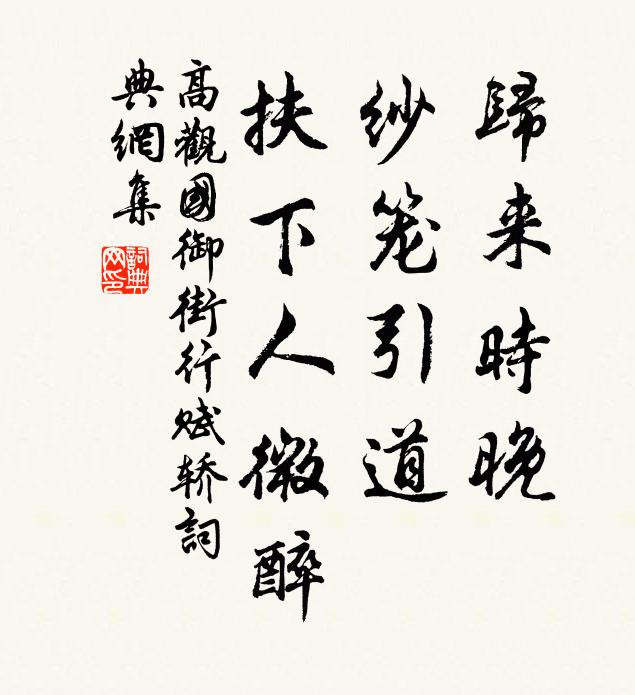 歸来時晚
纱笼引道
扶下人微醉
高觀國御街行赋轿詞
典網集
詞典
网印